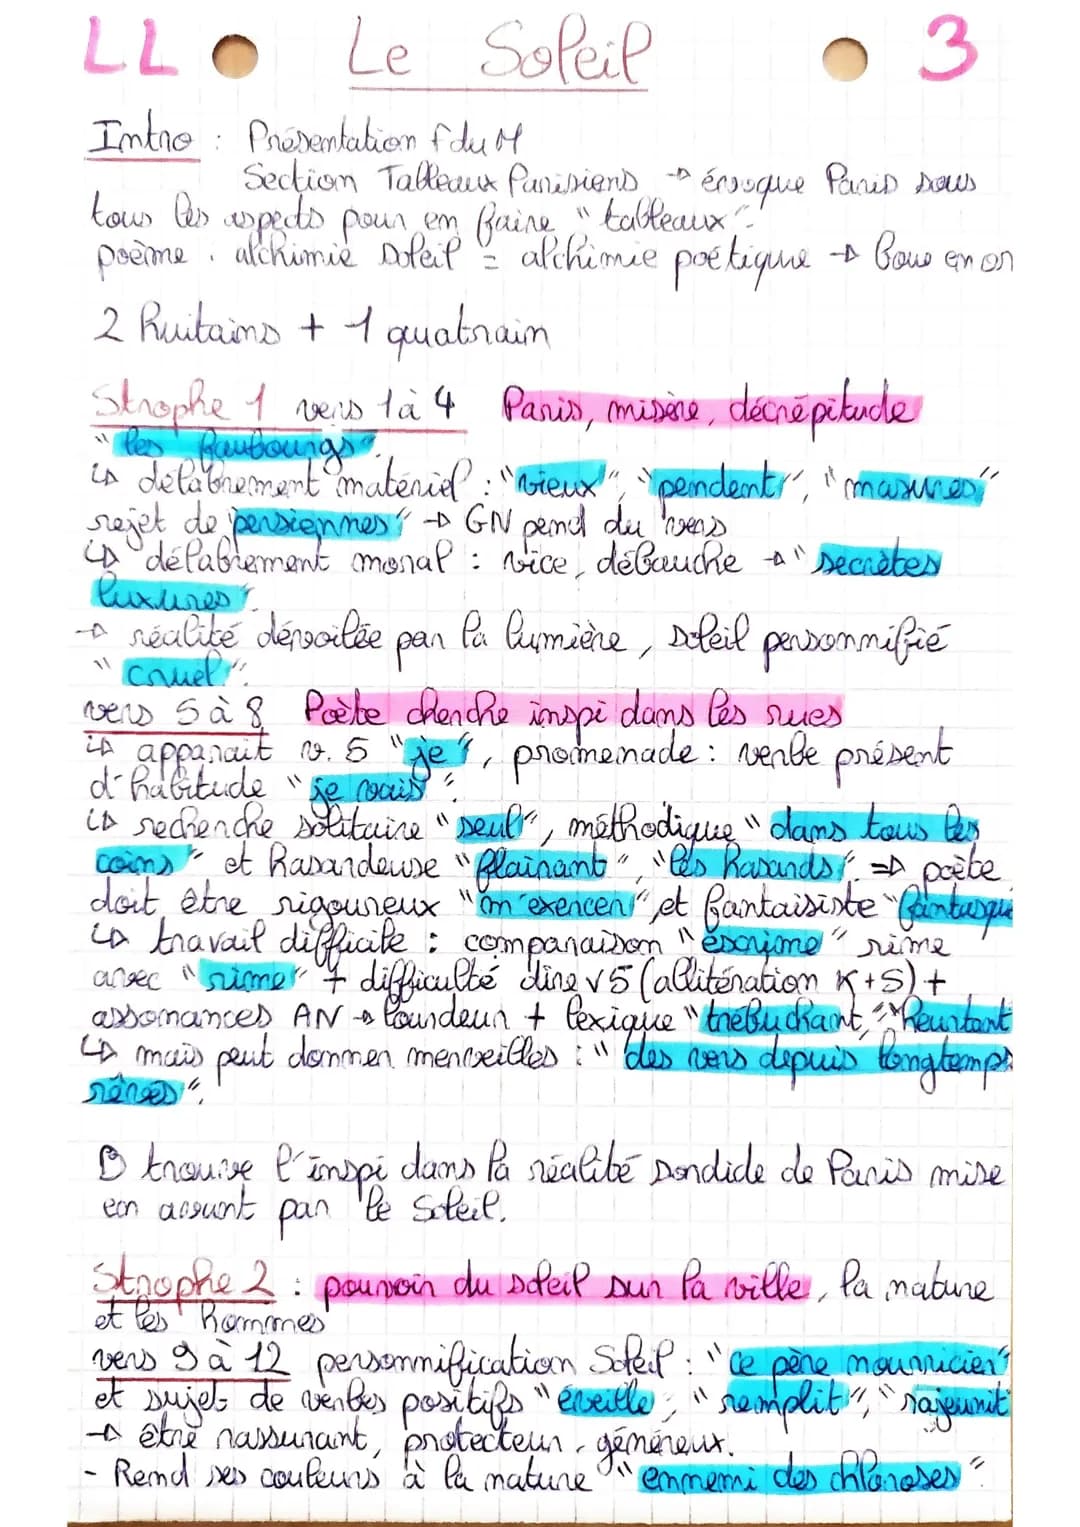 LL Le Soleil 3
Intro : Présentation f du M
Section Tableaux Parisiens → évoque Paris sous
tous les aspects pour en faire "tableaux".
poème : alchimie Soleil = alchimie poétique → boue en or
2 huitains + 1 quatrain
Strophe 1 vers 1 à 4 Paris, misère, décrépitude
"les faubourgs"
↳ délabrement matériel : "vieux", "pendent", "masures"
rejet de "persiennes" → GN pend du vers
↳ délabrement moral : vice, débauche → "secrètes
luxures".
→ réalité dévoilée par la lumière, soleil personnifié
"cruel".
vers 5 à 8 Poète cherche inspi dans les rues
↳ apparait v. 5 "je", promenade : verbe présent
d'habitude "je vais".
↳ recherche solitaire "seul", méthodique "dans tous les
coins" et hasardeuse "flairant", "les hasards". ⇒ poète
doit être rigoureux "m'exercer", et fantaisiste "fantasque
↳ travail difficile : comparaison "escrime" rime
avec "rime" + difficulté dire v5 (allitération K+S) +
assonances AN → lourdeur + lexique "trébuchant", "Heurtant
↳ mais peut donner merveilles : "des vers depuis longtemps
rêvés".
B trouve l'inspi dans la réalité sordide de Paris mise
en avant par le Soleil.
Strophe 2 : pouvoir du soleil sur la ville, la nature
et les hommes
vers 9 à 12 personnification Soleil : "ce père nourricier"
et sujet de verbes positifs "éveille", "remplit", "rajeunit
→ être rassurant, protecteur, généreux.
- Rend ses couleurs à la nature "ennemi des chloroses".